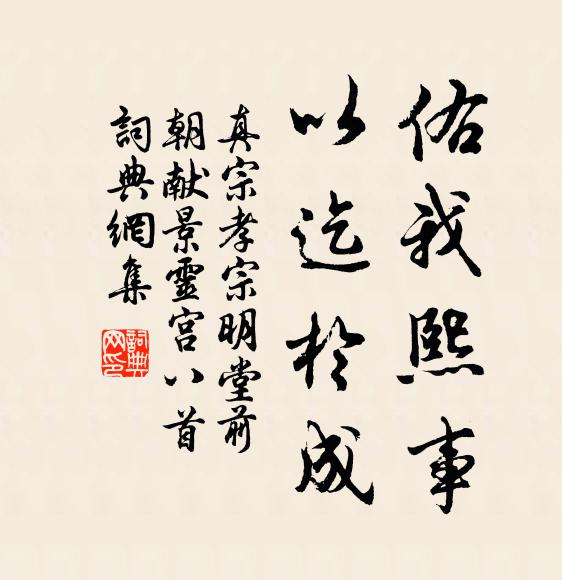 佑我熙事
以迄於成
真宗孝宗明堂前
朝献景靈宮八首
詞典網集
詞典
网印